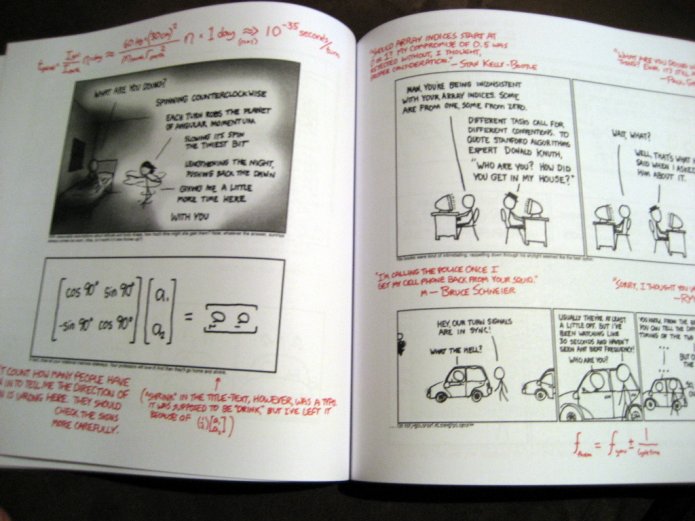 10^-35 seconds/turn
WHAT ARE YOU DOING?
SPINNING COUNTERCLOCKWISE
EACH TURN ROBS THE PLANET
OF ANGULAR MOMENTUM
SLOWING ITS SPIN
THE TINIEST BIT
LENGTHENING THE NIGHT,
PUSHING BACK THE DAWN
GIVING ME A LITTLE
MORE TIME HERE
WITH YOU
cos 90° sin 90°
-sin 90° cos 90°
a₁
a₂
=
COUNT HOW MANY PEOPLE HAVE
IN TO TELL ME THE DIRECTION OF
IS WRONG HERE. THEY SHOULD
CHECK THE SIGNS
MORE CAREFULLY.
("SHRINK" IN THE TITLE-TEXT, HOWEVER, WAS A TYPO.
IT WAS SUPPOSED TO BE "DRINK," BUT I'VE LEFT IT
BECAUSE OF
"SHOULD ARRAY INDICES START AT
0 OR 1? MY COMPROMISE OF 0.5 WAS
REJECTED WITHOUT, I THOUGHT,
PROPER CONSIDERATION." — STAN KELLY-BOOTLE
MAN, YOU'RE BEING INCONSISTENT
WITH YOUR ARRAY INDICES. SOME
ARE FROM ONE, SOME FROM ZERO.
DIFFERENT TASKS CALL FOR
DIFFERENT CONVENTIONS. TO
QUOTE STANFORD ALGORITHMS
EXPERT DONALD KNUTH,
"WHO ARE YOU? HOW DID
YOU GET IN MY HOUSE?"
"WHAT ARE YOU DOING
WAIT, WHAT?
WELL, THAT'S WHAT
SAID WHEN I ASKED
HIM ABOUT IT.
"I'M CALLING THE POLICE ONCE I
GET MY CELL PHONE BACK FROM YOUR SQUID."
— BRUCE SCHNEIER
"SORRY, I THOUGHT YOU
HEY, OUR TURN SIGNALS
ARE IN SYNC!
WHAT THE HELL?
USUALLY THEY'RE AT LEAST
A LITTLE OFF. BUT I'VE
BEEN WATCHING LIKE
30 SECONDS AND HAVEN'T
SEEN ANY BEAT FREQUENCY!
WHO ARE YOU?
YOU KNOW, FROM THE
YOU CAN TELL THE
TIMING OF THE TWO